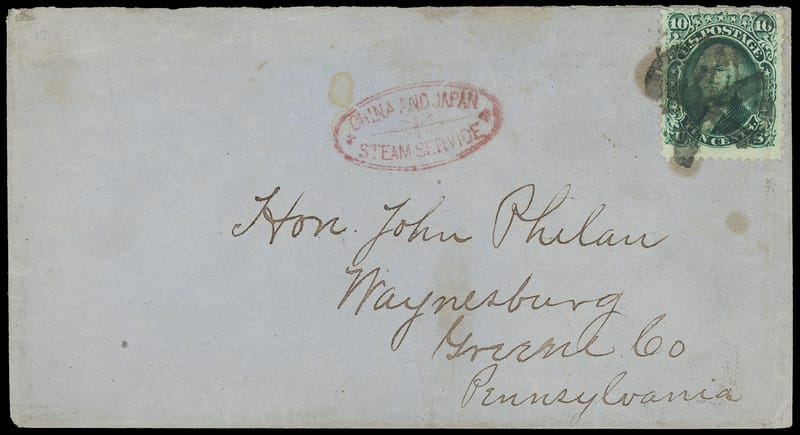 10 10
U.S. POSTAGE
TEN CENTS
CHINA AND JAPAN
STEAM SERVICE
Hon. John Philan
Waynesburg
Greene Co
Pennsylvania